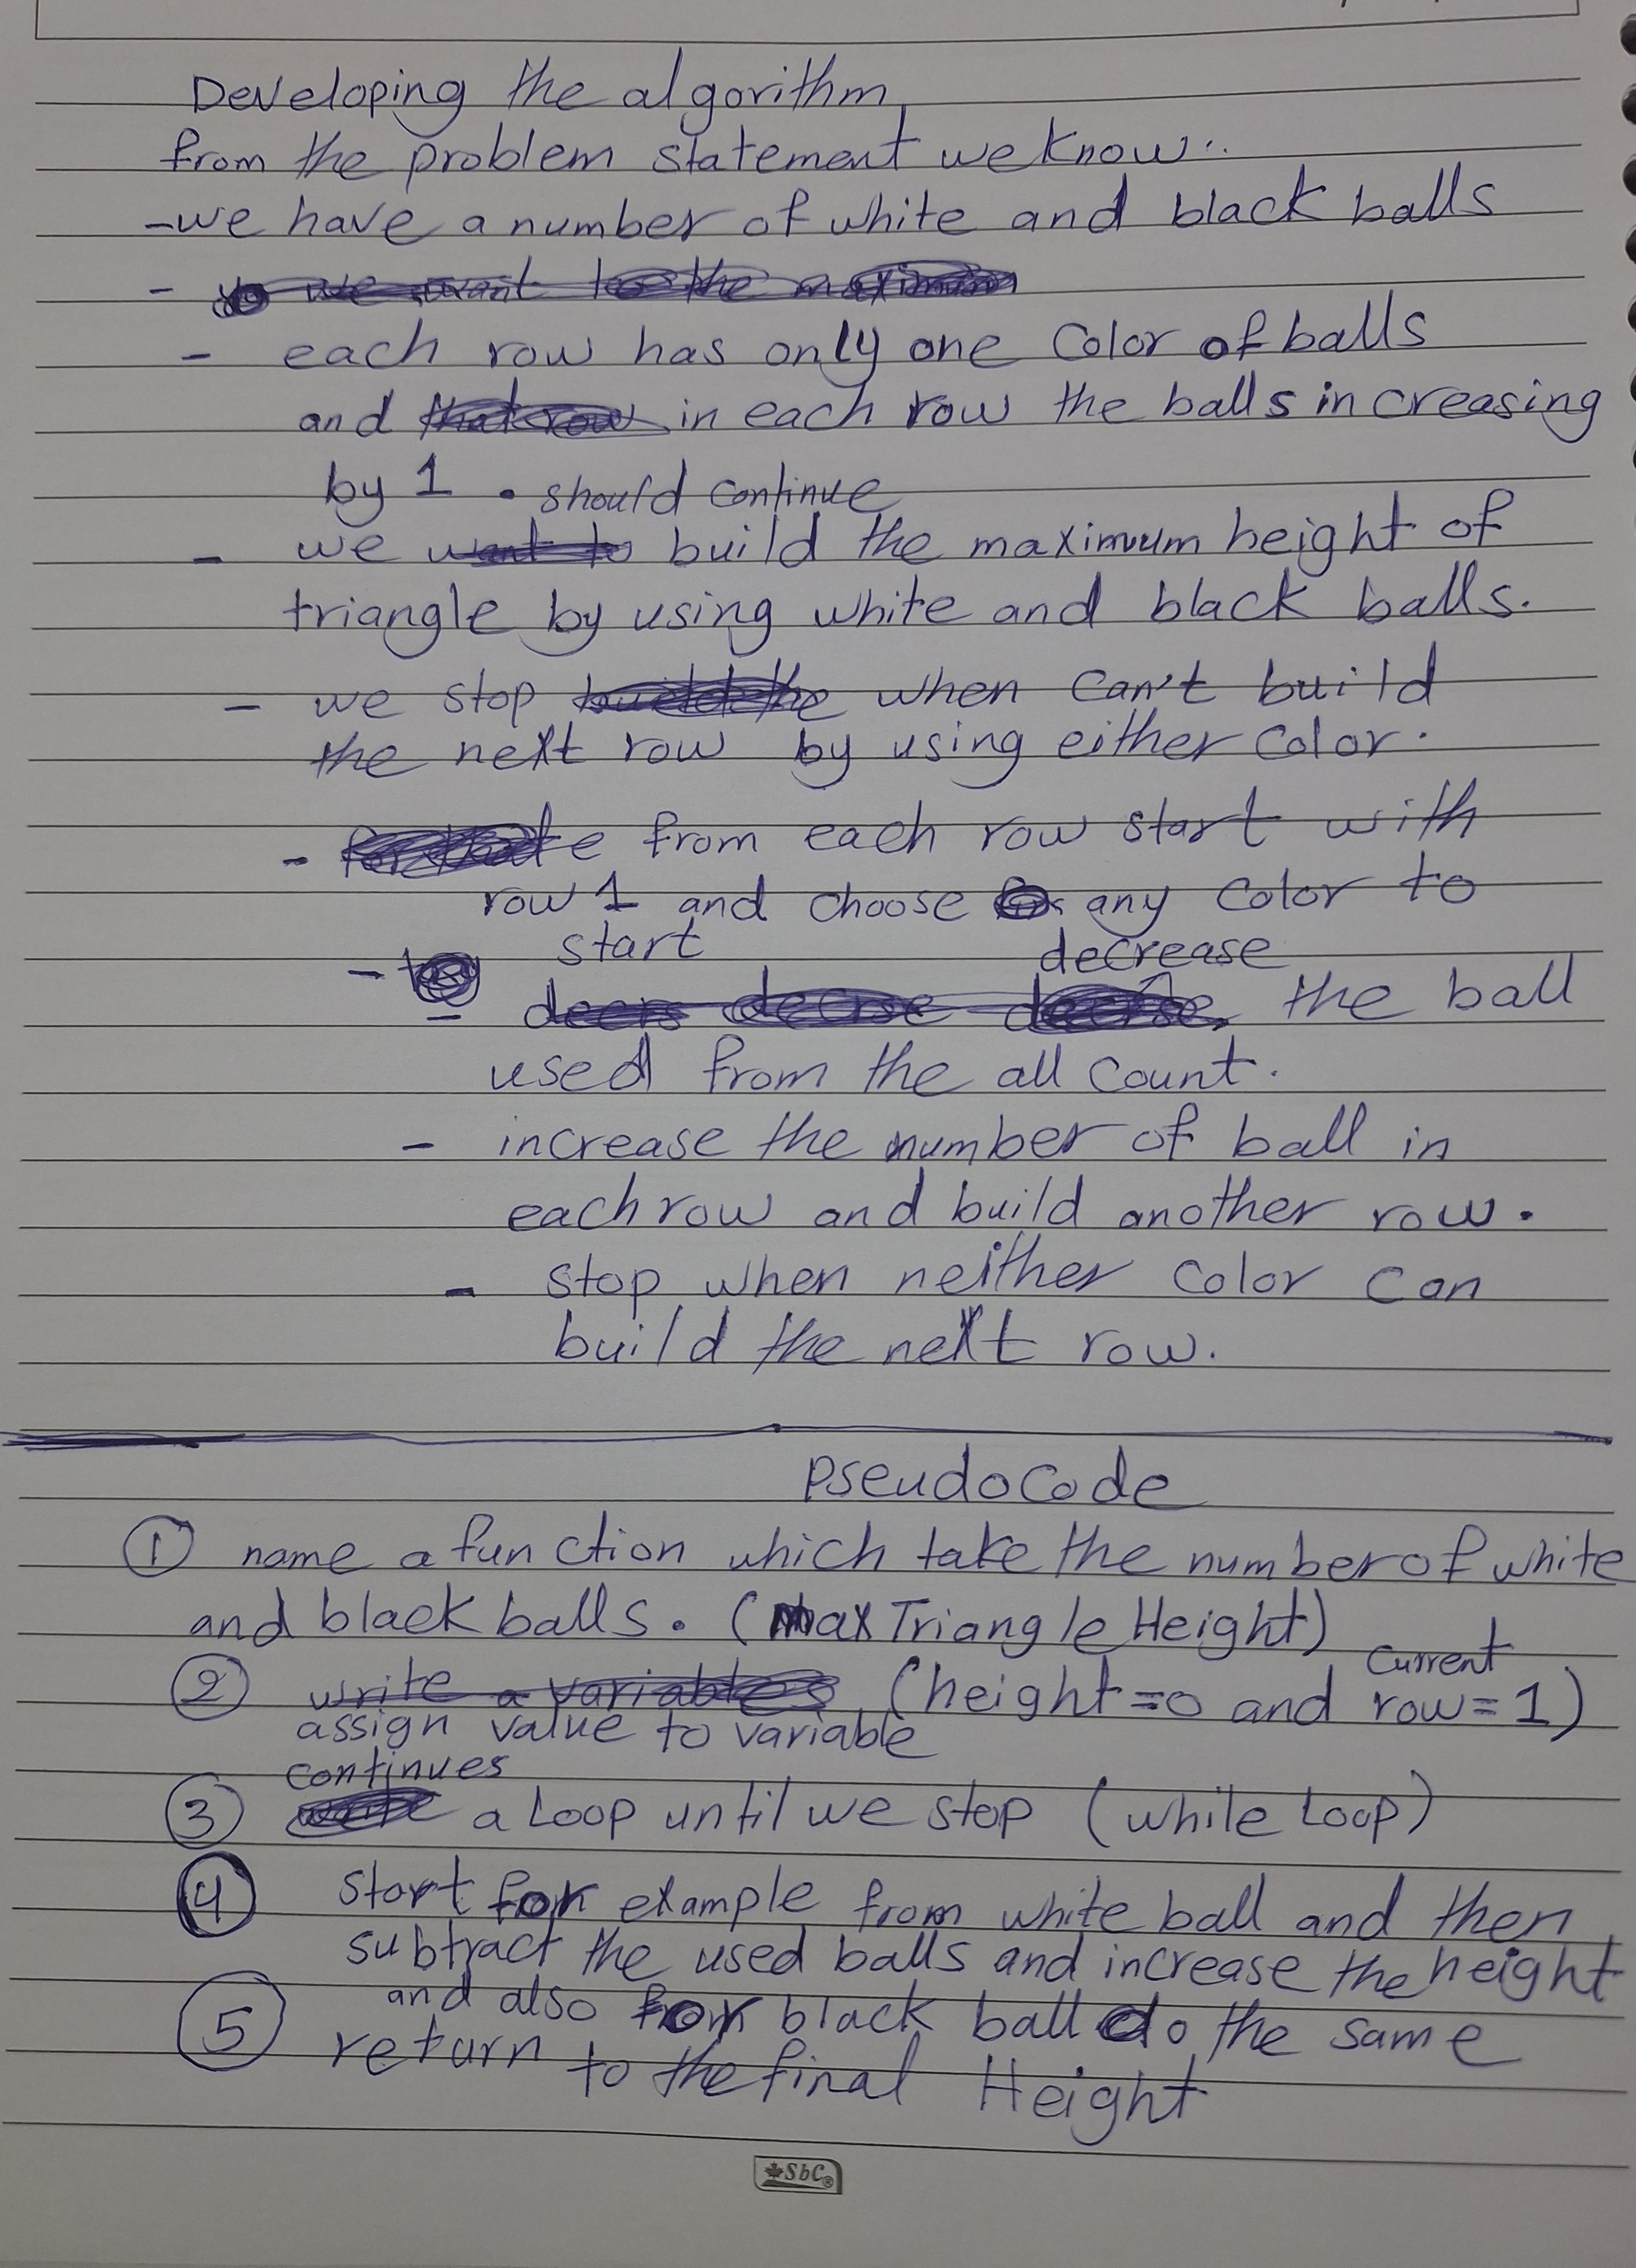 Developing the algorithm
from the problem statement we know..
- we have a number of white and black balls
-
- each row has only one Color of balls
and in each row the balls increasing
by 1 . should continue
- we build the maximum height of
triangle by using white and black balls.
- we stop when can't build
the next row by using either color.
- from each row start with
row 1 and choose any color to
start
decrease
- the ball
used from the all count.
- increase the number of ball in
each row and build another row.
- stop when neither color can
build the next row.
Pseudocode
① name a function which take the number of white
and black balls. (MaxTriangleHeight)
current
② (height=0 and row=1)
assign value to variable
continues
③ a Loop until we stop (while Loop)
④ start for example from white ball and then
subtract the used balls and increase the height
and also for black ball do the same
⑤ return to the final Height
SbC